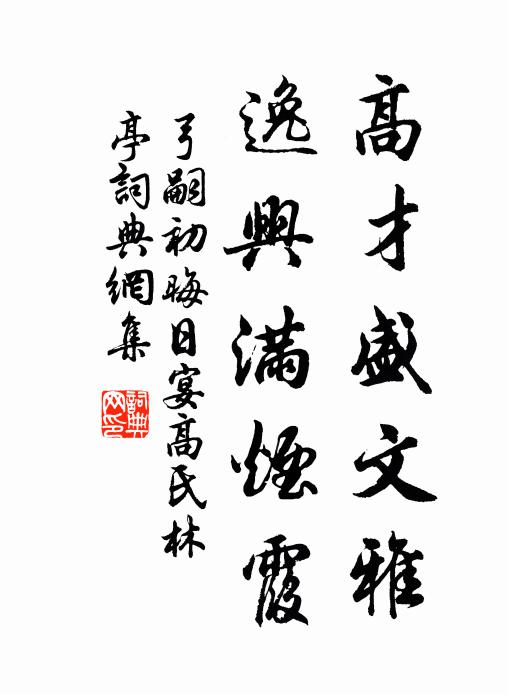 高才盛文雅
逸興滿煙霞
弓嗣初晦日宴高氏林
亭詞典網集
詞典網印